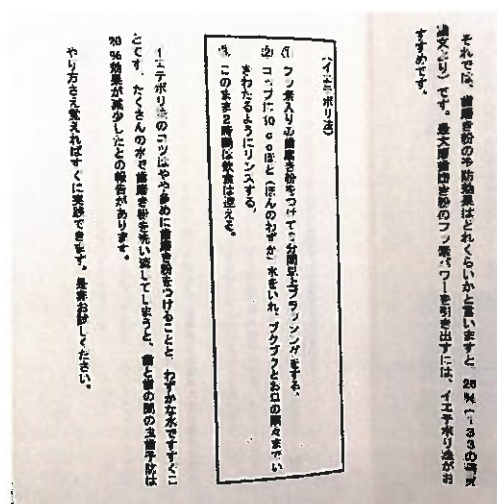 それでは、歯磨き粉の予防効果はどれくらいかと言いますと、26%(133の研究
論文より)です。最大限歯磨き粉のフッ素パワーを引き出すには、イエテボリ法がお
すすめです。
(イエテボリ法)
フッ素入り歯磨き粉をつけて 分間以上ブラッシングをする。
コップに10ccほど(ほんのわずか)水をいれ、ブクブクとお口の隅々までい
きわたるようにリンスする。
このまま2時間は飲食は控える。
イエテボリ法のコツはやや多めに歯磨き粉をつけることと、わずかな水ですすぐこ
とです。たくさんの水で歯磨き粉を洗い流してしまうと、歯と歯の間の虫歯予防は
20%効果が減少したとの報告があります。
やり方さえ覚えればすぐに実践できます。是非お試しください。